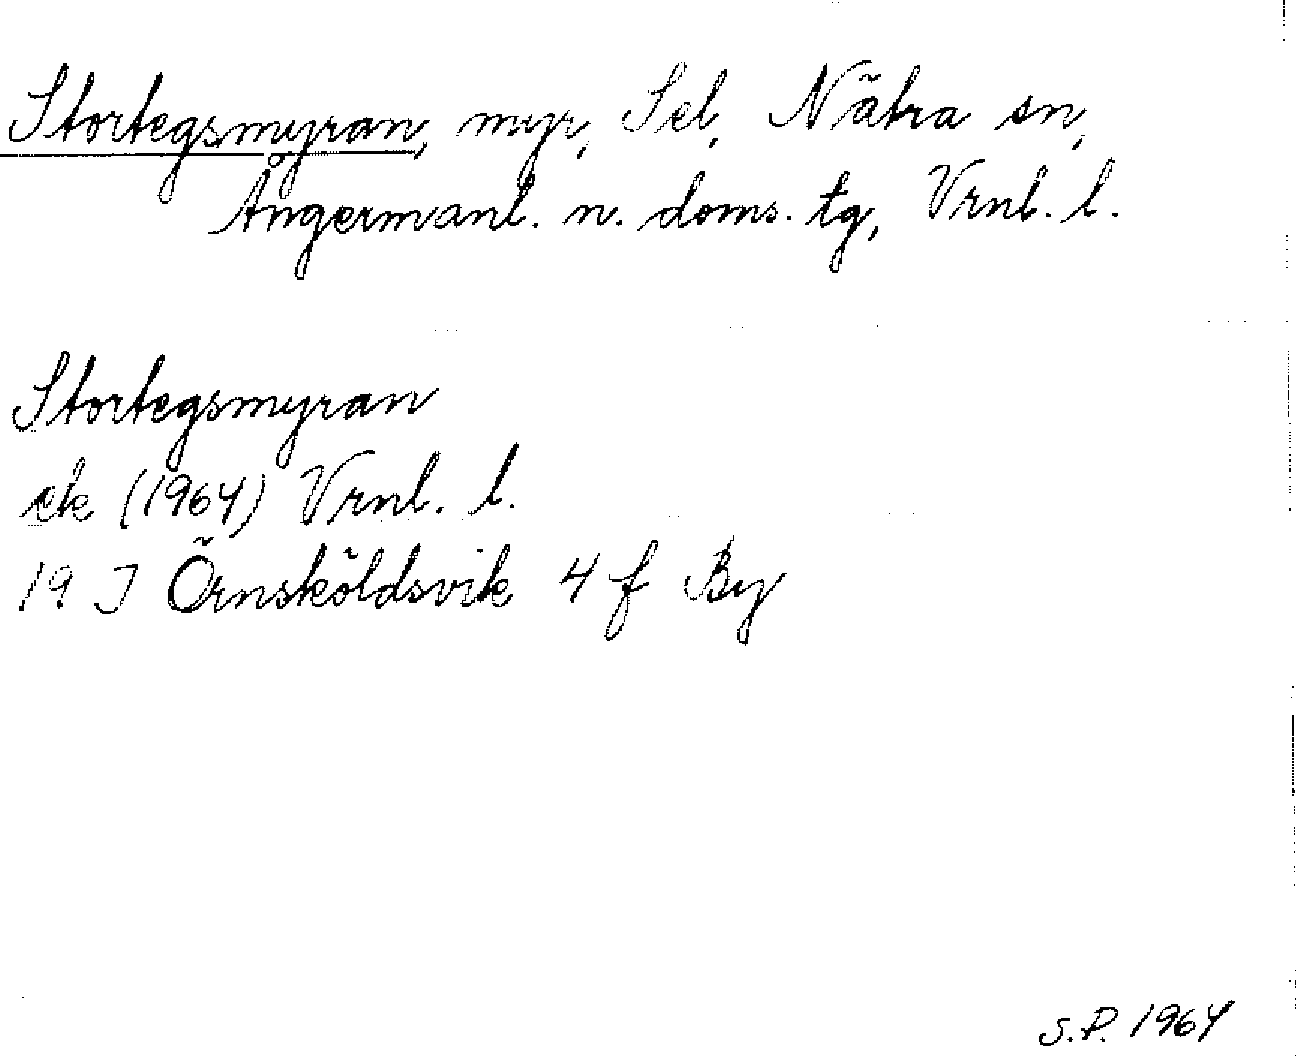 Stortegsmyran, myr, Sel, Nätra sn,
Ångermanl. n. doms. tg, Vrnl. l.
Stortegsmyran
ek (1964) Vrnl. l.
19 J Örnsköldsvik 4 f By
S.P. 1964